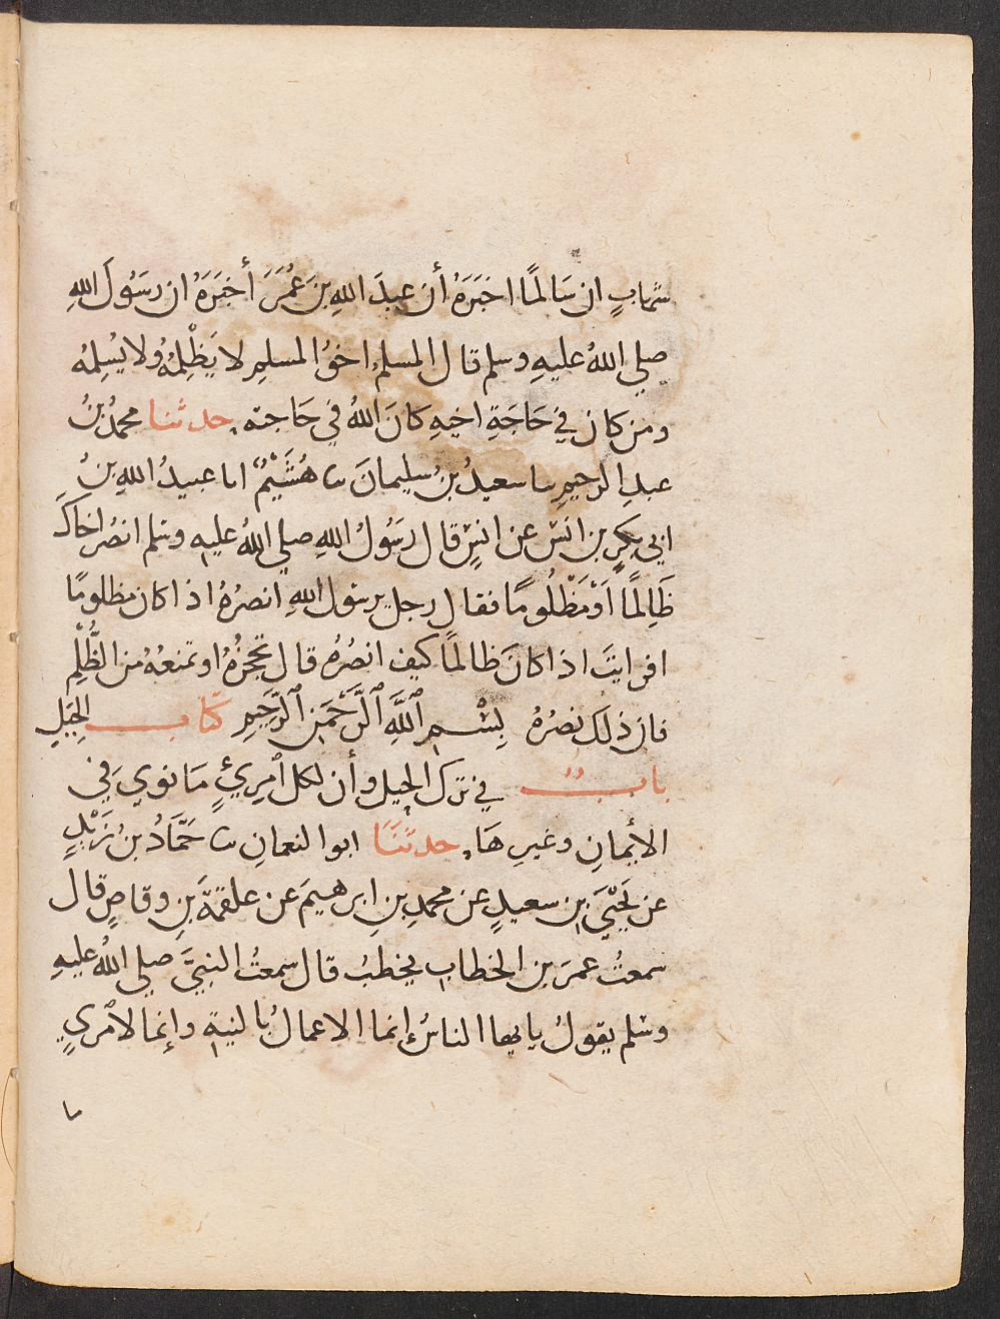 شهابٍ ان سَالمًا اخبَرَهُ أن عبدَ اللهِ بنَ عُمَرَ أخبَرَهُ ان رسَوُلَ اللهِ
صلي اللهُ عليهِ وسلم قال المسلم اخوُ المسلمِ لا يَظْلِمُهُ ولا يُسْلِمُه
ومن كان في حَاجَةِ اخيهِ كانَ اللهُ في حَاجته حدثنا محمدُ بنُ
عبدِ الرحيمِ نا سعيدُ بنُ سليمانَ نا هُشَيْمٌ انا عبيدُ اللهِ بنُ
ابي بكرٍ بن انسٍ عن انسٍ قال رسَوُلُ اللهِ صلي اللهُ عليهِ وسلم انصُر اخاكَ
ظَالِمًا اَوْ مَظْلُومًا فقال رجل يرسول اللهِ انصرُهُ اذا كان مظلومًا
افرايتَ اذا كانَ ظالمًا كيف انصُرُه قال تحجزُهُ او تمنعُهُ من الظُّلْمِ
فان ذلك نصرُهُ بِسْمِ ٱللَّهِ ٱلرَّحْمَنِ ٱلرَّحِيمِ كتاب الحِيَلِ
بابٌ في ترك الحيل وأن لكل ٱمرِئٍ مَا نوي في
الأيمانِ وغيرِهَا حدثنَا ابوا لنعمانِ نا حَمَّادُ بنُ زَيْدٍ
عن يَحْيَي بنِ سعيدٍ عن محمدِ بنِ ابرهيمَ عن علقمةَ بنِ وقاصٍ قال
سمعتُ عمرَ بن الخطابِ يخطبُ قال سمعتُ النبيَّ صلي اللهُ عليهِ
وسلم يقولُ يايها الناسُ إنما الاعمالُ بالنيةِ وإنما لٱمريٍ
ما